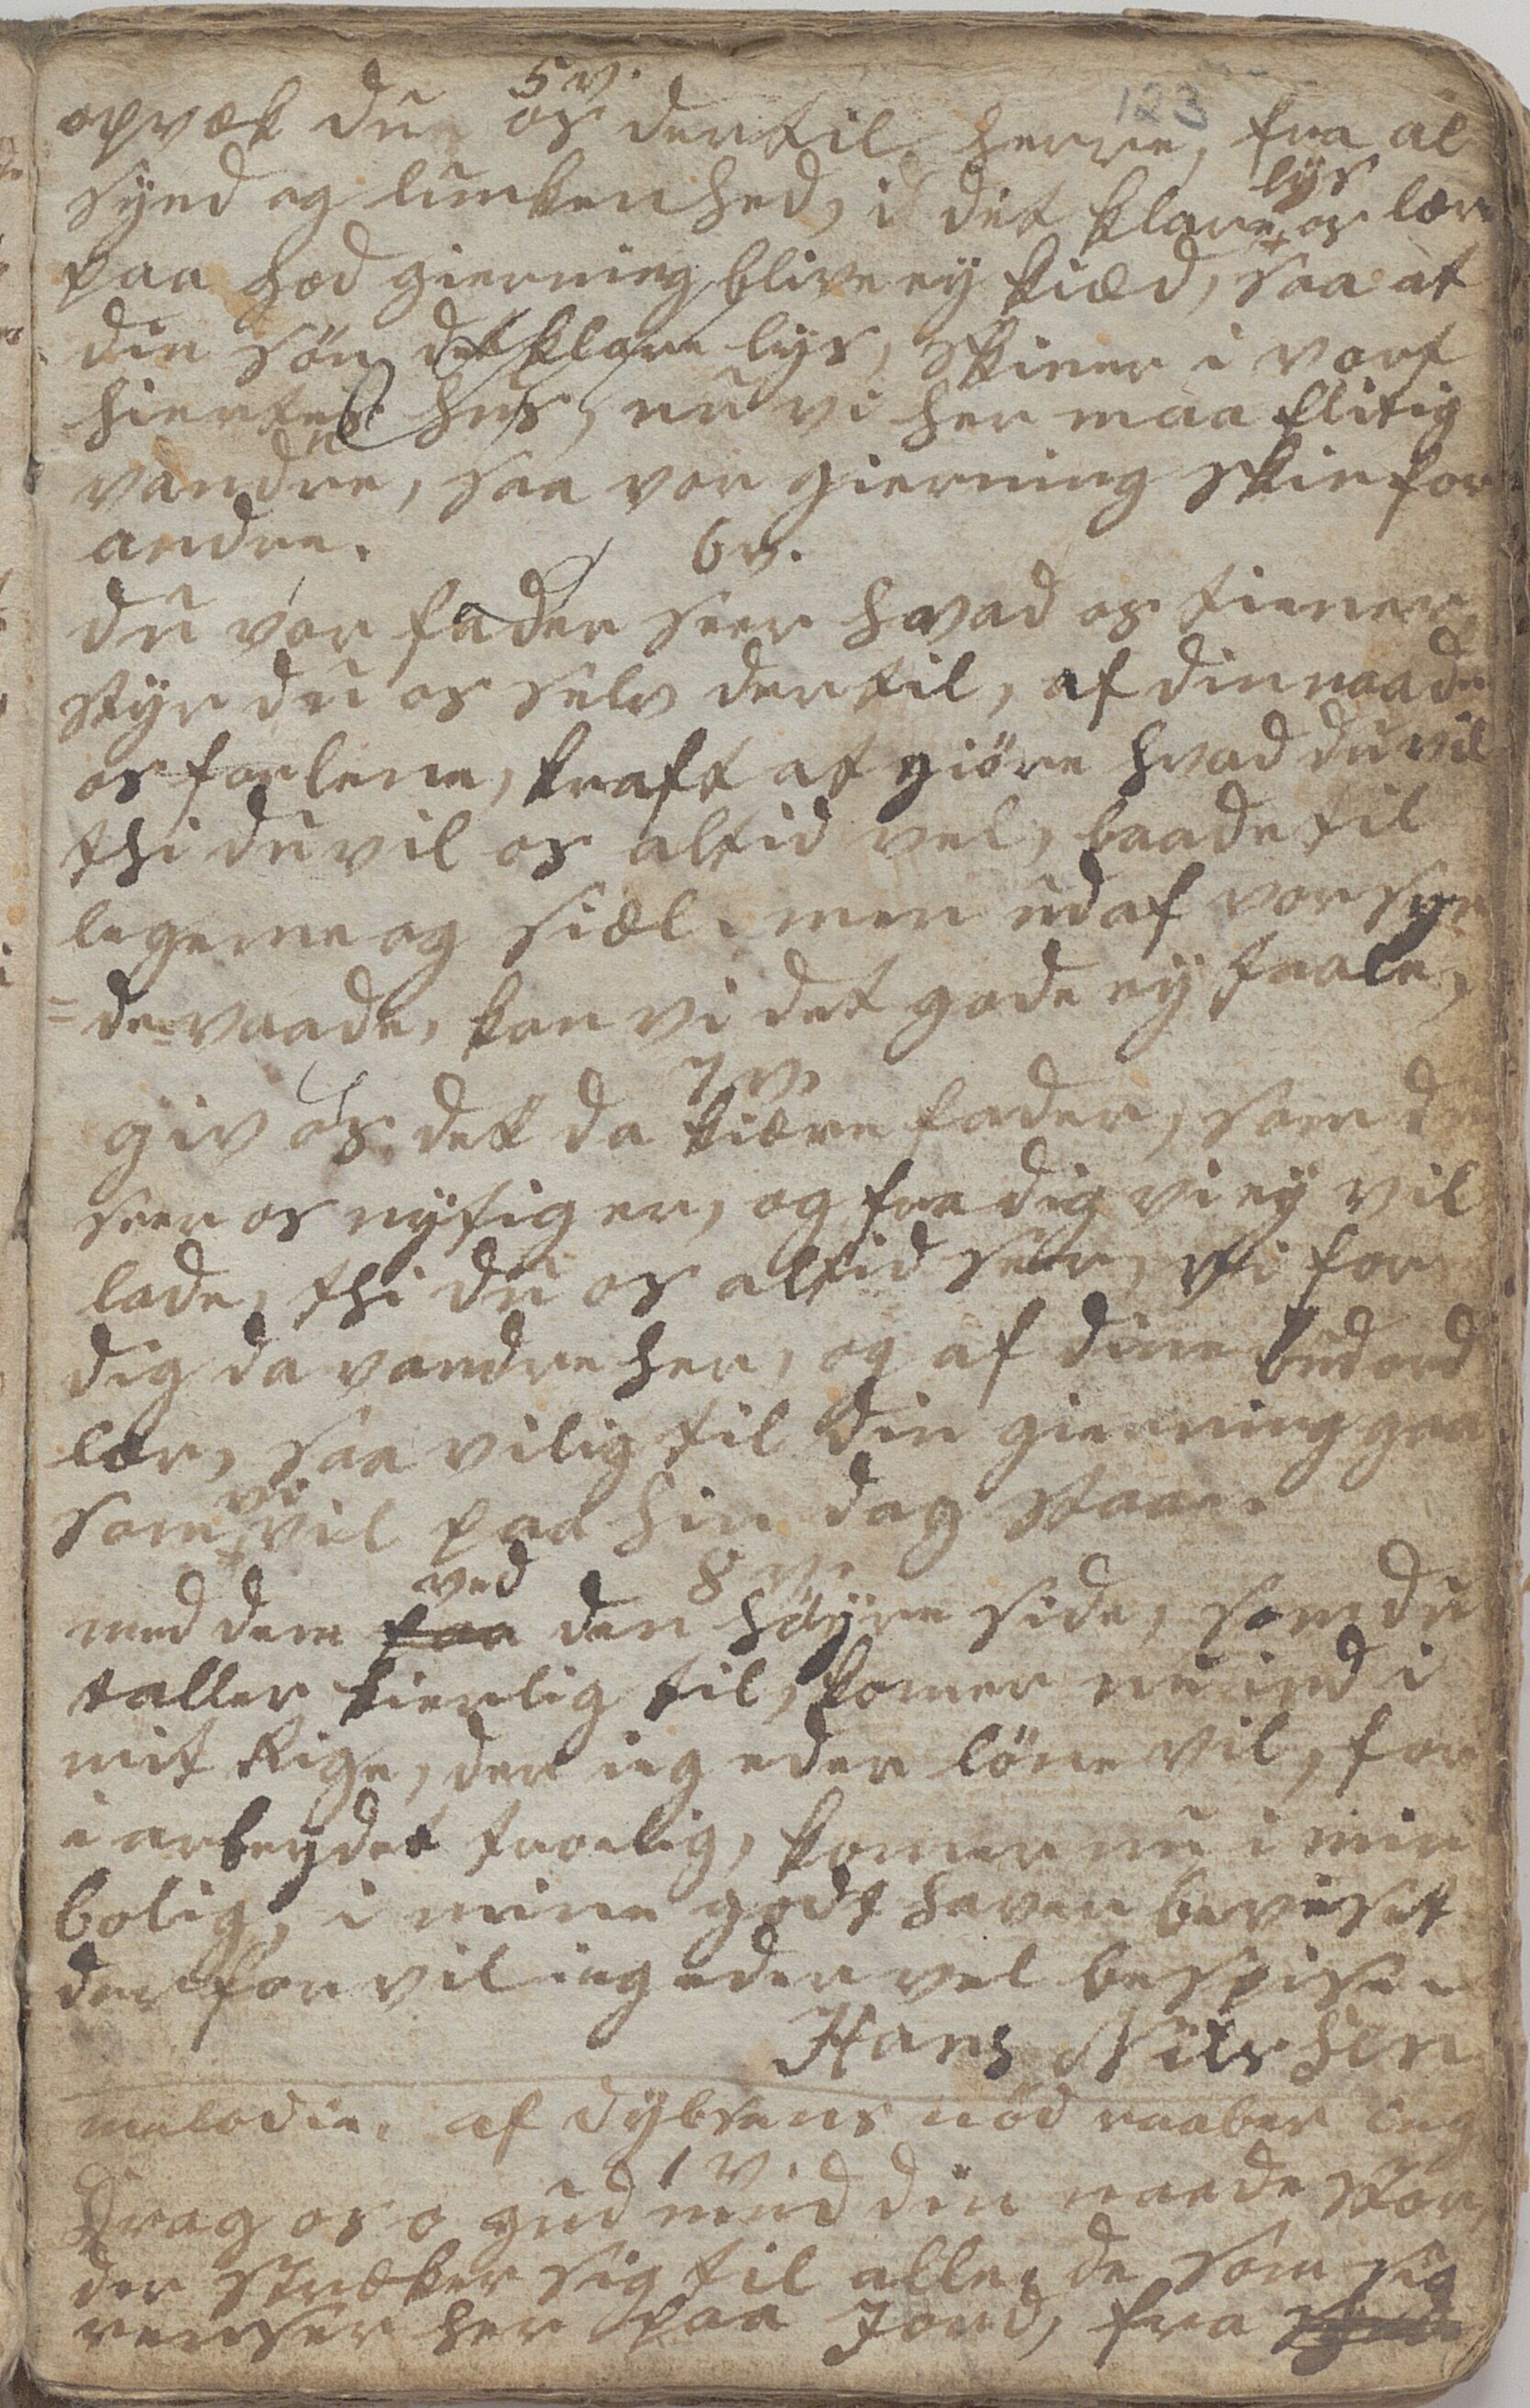 5 v.
123
opvæk du os dertil herre, fra al
synd og lunkenhed, i det klare os lær
lys
paa god gierning blive ey kied, saa at
din søn det klare lys, skiner i vort
hiertes hus, nu vi her maa flitig
vandre, saa vor gierning skin for
andre.
6 v.
du vor fader seer hvad os tiener
styr du os selv dertil, af din naade
os forlene, kraft at giöre hvad du vil
thi du vil os altid vel, baade til
legeme og siæl. men ud af vor syn
= de vaade, kan vi det gode ey taale,
7 v.
giv os det da kiære fader, som du
seer os nytig er, og fra dig vi ey vil
lade, thi du os altid seer, vi for
dig da vandre her, og af dine budord
lær, saa vilig til din gierning gaa
som vil paa hin dag staae.
vi
8 v.
med dem paa den höyre side, som du
ved
taller kierlig til, komer nu ind i
mit Rige, der ieg eder löne vil, for
i arbeydet troelig, komer nu i min
bolig, i mine godt haver beviset
derfor vil ieg eder vel bespise.
Hans Nils Sen
melodie. af dybsens nöd raaber ieg
1 v.
Drag os o gud med din naade stor,
der stræker sig til alle, de som sig
renser her paa Jord, fra